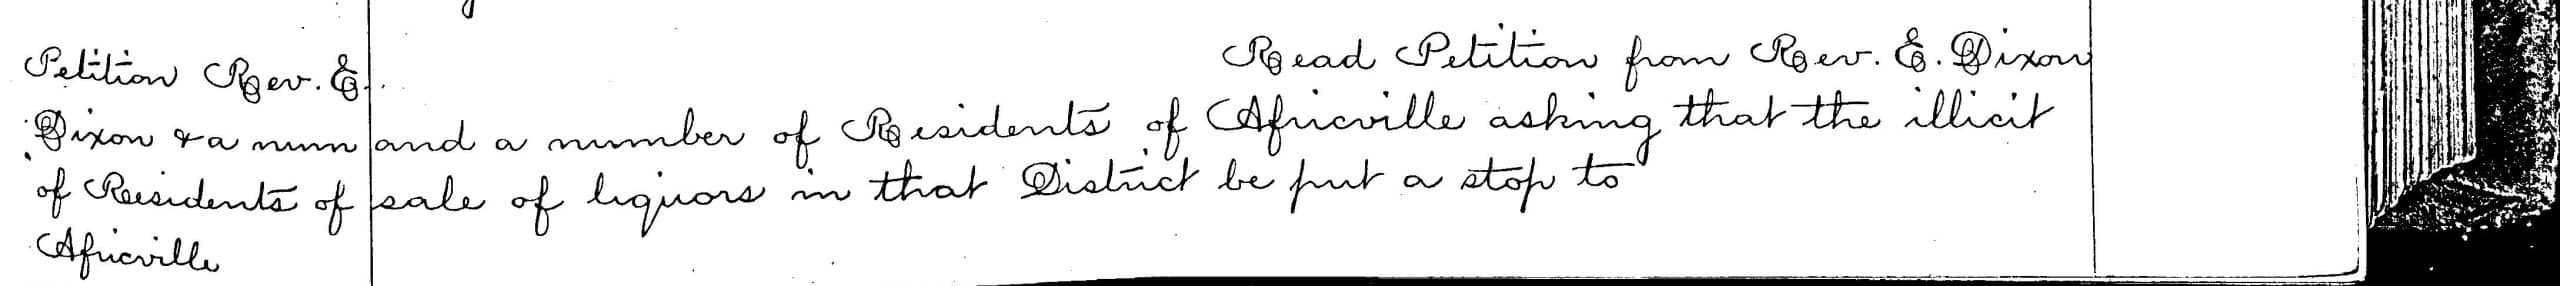 Petition Rev. E.
Dixon & a num
of Residents of
Africville
Read Petition from Rev. E. Dixon
and a number of Residents of Africville asking that the illicit
sale of liquors in that District be put a stop to